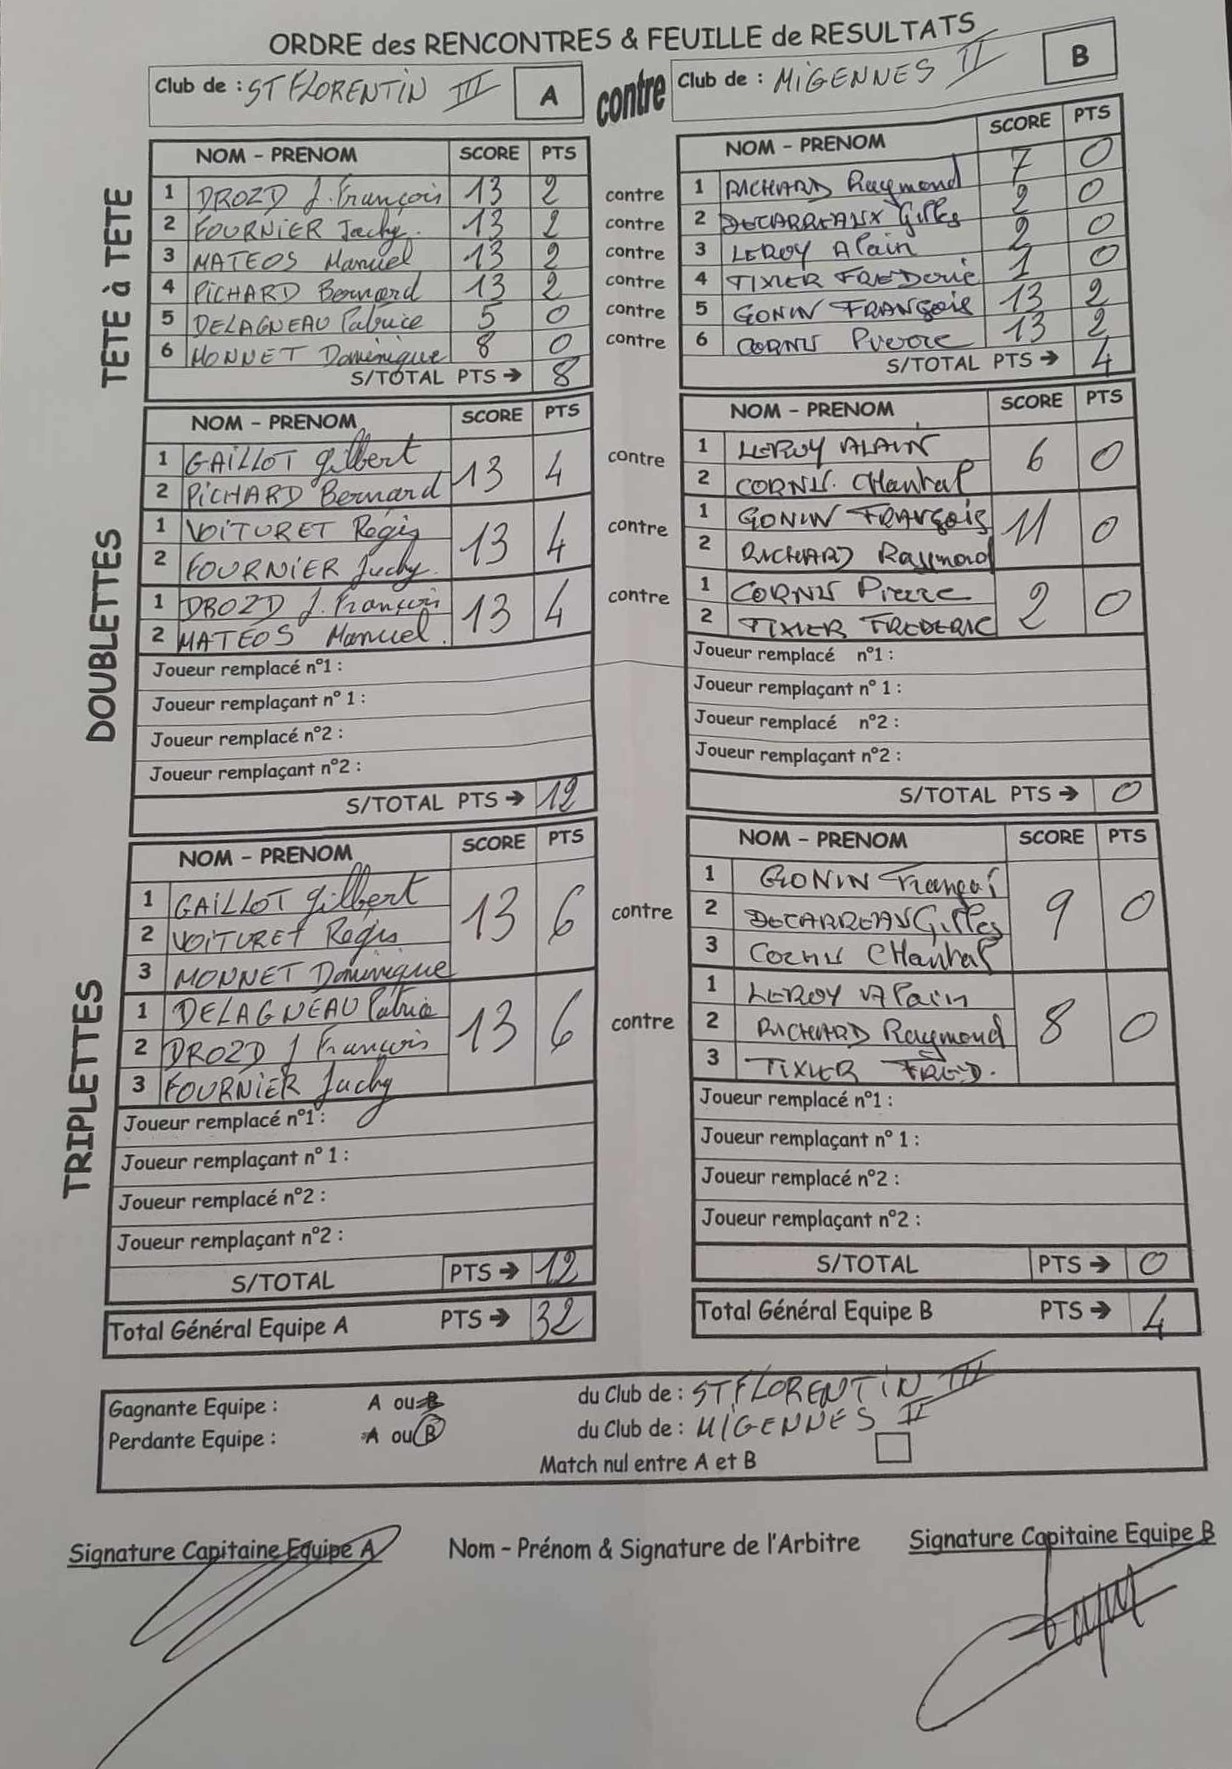 ORDRE des RENCONTRES & FEUILLE de RESULTATS
Club de : ST FLORENTIN III A contre Club de : MIGENNES II B
TETE à TETE
NOM - PRENOM SCORE PTS NOM - PRENOM SCORE PTS
1 DROZD J. François 13 2 contre 1 RICHARD Raymond 7 0
2 FOURNIER Jacky. 13 2 contre 2 DECARREAUX Gilles 2 0
3 MATEOS Manuel 13 2 contre 3 LEROY Alain 2 0
4 PICHARD Bernard 13 2 contre 4 TIXIER FREDERIC 1 0
5 DELAGNEAU Patrice 5 0 contre 5 GONIN FRANÇOIS 13 2
6 MONNET Dominique 8 0 contre 6 CORNIS Pierre 13 2
S/TOTAL PTS → 8 S/TOTAL PTS → 4
DOUBLETTES
NOM - PRENOM SCORE PTS NOM - PRENOM SCORE PTS
1 GAILLOT Gilbert 13 4 contre 1 LEROY ALAIN 6 0
2 PICHARD Bernard 2 CORNIS. CHantal
1 VOITURET Régis 13 4 contre 1 GONIN FRANÇOIS 11 0
2 FOURNIER Jacky. 2 RICHARD Raymond
1 DROZD J. François 13 4 contre 1 CORNIS Pierre 2 0
2 MATEOS Manuel. 2 TIXIER FREDERIC
Joueur remplacé n°1 : Joueur remplacé n°1 :
Joueur remplaçant n° 1 : Joueur remplaçant n° 1 :
Joueur remplacé n°2 : Joueur remplacé n°2 :
Joueur remplaçant n°2 : Joueur remplaçant n°2 :
S/TOTAL PTS → 12 S/TOTAL PTS → 0
TRIPLETTES
NOM - PRENOM SCORE PTS NOM - PRENOM SCORE PTS
1 GAILLOT Gilbert 13 6 contre 1 GONIN François 9 0
2 VOITURET Régis 2 DECARREAUX Gilles
3 MONNET Dominique 3 CORNIS CHantal
1 DELAGNEAU Patrice 13 6 contre 1 LEROY Alain 8 0
2 DROZD J François 2 RICHARD Raymond
3 FOURNIER Jacky 3 TIXIER FRED.
Joueur remplacé n°1 : Joueur remplacé n°1 :
Joueur remplaçant n° 1 : Joueur remplaçant n° 1 :
Joueur remplacé n°2 : Joueur remplacé n°2 :
Joueur remplaçant n°2 : Joueur remplaçant n°2 :
S/TOTAL PTS → 12 S/TOTAL PTS → 0
Total Général Equipe A PTS → 32 Total Général Equipe B PTS → 4
Gagnante Equipe : A ou B du Club de : ST FLORENTIN III
Perdante Equipe : A ou B du Club de : MIGENNES II
Match nul entre A et B
Signature Capitaine Equipe A Nom - Prénom & Signature de l'Arbitre Signature Capitaine Equipe B